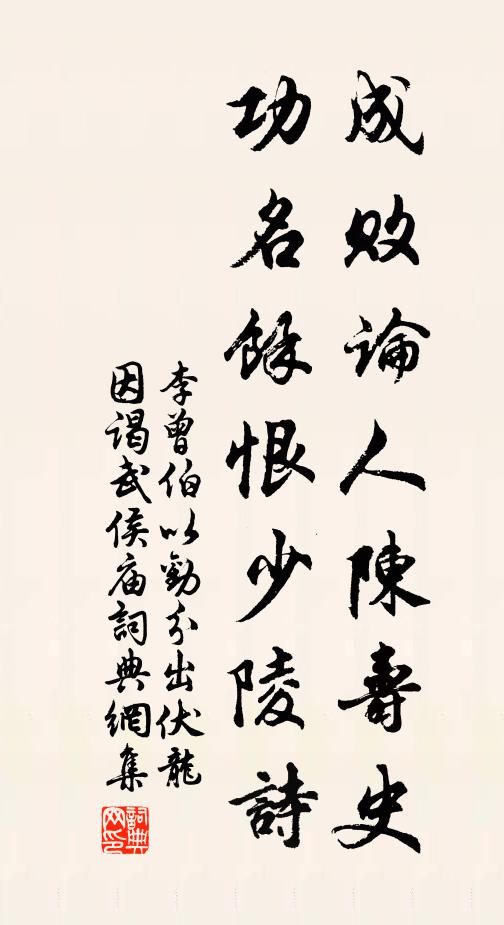 成敗論人陳壽史
功名餘恨少陵詩
李曾伯以勸分出伏龍
因謁武侯庙詞典網集
詞典
网印